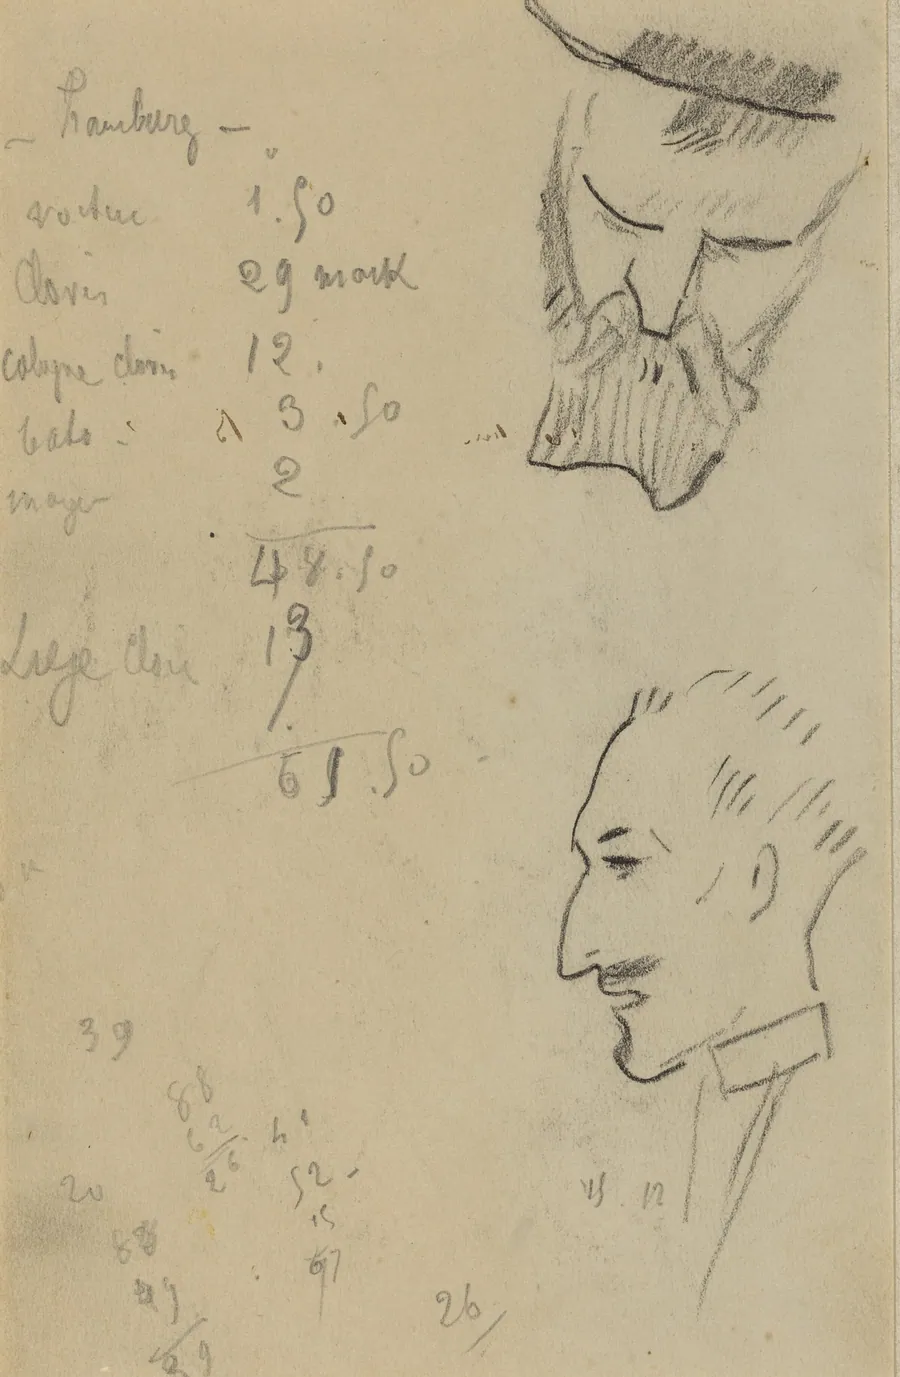 - Hamburg -
voiture 1.50
Clovis 29 mark
cologne clovis 12.
bato 3.50
2
48.50
Liege Clovis 13
61.50
39
88
62
26
20
52 -
15
67
88
49
39
15 . 12
26/